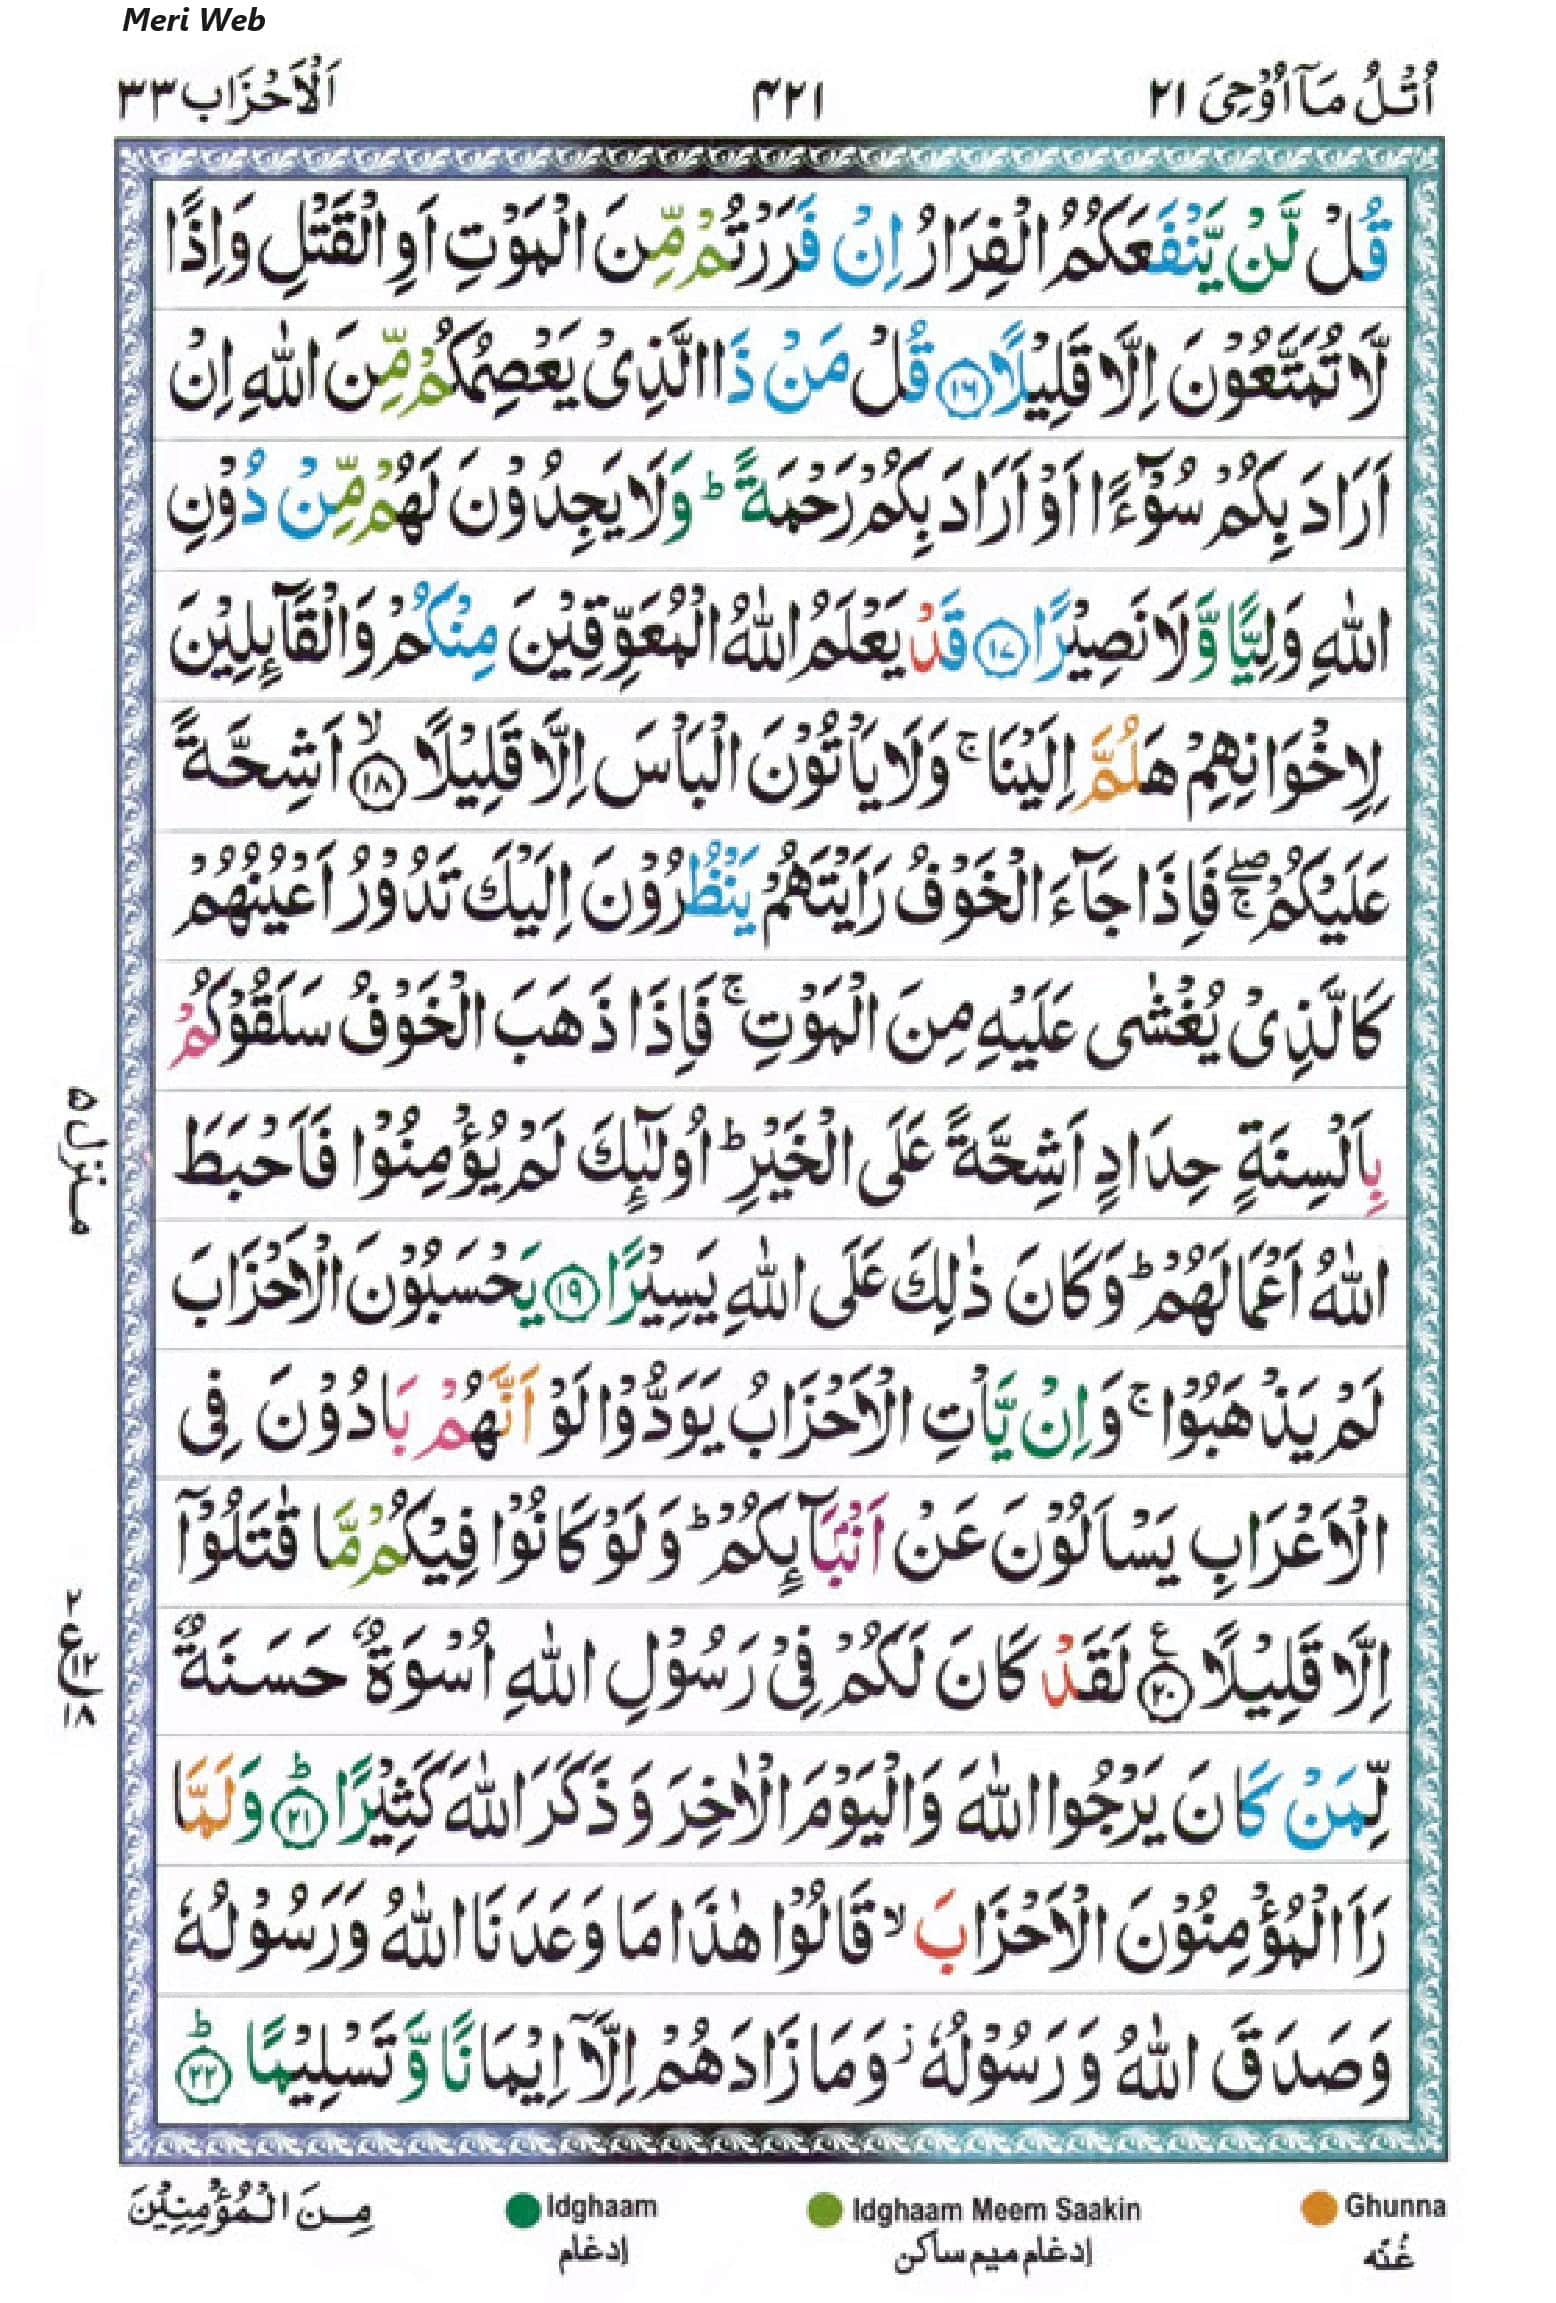 Meri Web
اُتْلُ مَاۤ اُوْحِیَ ۲۱
۴۲۱
اَلْاَحْزَاب ۳۳
قُلْ لَّنْ یَّنْفَعَكُمُ الْفِرَارُ اِنْ فَرَرْتُمْ مِّنَ الْمَوْتِ اَوِ الْقَتْلِ وَاِذًا
لَّا تُمَتَّعُوْنَ اِلَّا قَلِیْلًا ﴿۱۶﴾ قُلْ مَنْ ذَا الَّذِیْ یَعْصِمُكُمْ مِّنَ اللّٰهِ اِنْ
اَرَادَ بِكُمْ سُوْٓءًا اَوْ اَرَادَ بِكُمْ رَحْمَةً ؕ وَلَا یَجِدُوْنَ لَهُمْ مِّنْ دُوْنِ
اللّٰهِ وَلِیًّا وَّلَا نَصِیْرًا ﴿۱۷﴾ قَدْ یَعْلَمُ اللّٰهُ الْمُعَوِّقِیْنَ مِنْكُمْ وَالْقَآىِٕلِیْنَ
لِاِخْوَانِهِمْ هَلُمَّ اِلَیْنَا ۚ وَلَا یَاْتُوْنَ الْبَاْسَ اِلَّا قَلِیْلًا ﴿۱۸﴾ۙ اَشِحَّةً
عَلَیْكُمْ ۖۚ فَاِذَا جَآءَ الْخَوْفُ رَاَیْتَهُمْ یَنْظُرُوْنَ اِلَیْكَ تَدُوْرُ اَعْیُنُهُمْ
كَالَّذِیْ یُغْشٰی عَلَیْهِ مِنَ الْمَوْتِ ۚ فَاِذَا ذَهَبَ الْخَوْفُ سَلَقُوْكُمْ
بِاَلْسِنَةٍ حِدَادٍ اَشِحَّةً عَلَی الْخَیْرِ ؕ اُولٰٓىِٕكَ لَمْ یُؤْمِنُوْا فَاَحْبَطَ
اللّٰهُ اَعْمَالَهُمْ ؕ وَكَانَ ذٰلِكَ عَلَی اللّٰهِ یَسِیْرًا ﴿۱۹﴾ یَحْسَبُوْنَ الْاَحْزَابَ
لَمْ یَذْهَبُوْا ۚ وَاِنْ یَّاْتِ الْاَحْزَابُ یَوَدُّوْا لَوْ اَنَّهُمْ بَادُوْنَ فِی
الْاَعْرَابِ یَسْاَلُوْنَ عَنْ اَنْۢبَآىِٕكُمْ ؕ وَلَوْ كَانُوْا فِیْكُمْ مَّا قٰتَلُوْۤا
اِلَّا قَلِیْلًا ﴿۲۰﴾ لَقَدْ كَانَ لَكُمْ فِیْ رَسُوْلِ اللّٰهِ اُسْوَةٌ حَسَنَةٌ
لِّمَنْ كَانَ یَرْجُوا اللّٰهَ وَالْیَوْمَ الْاٰخِرَ وَذَكَرَ اللّٰهَ كَثِیْرًا ﴿۲۱﴾ؕ وَلَمَّا
رَاَ الْمُؤْمِنُوْنَ الْاَحْزَابَ ۙ قَالُوْا هٰذَا مَا وَعَدَنَا اللّٰهُ وَرَسُوْلُهٗ
وَصَدَقَ اللّٰهُ وَرَسُوْلُهٗ ؗ وَمَا زَادَهُمْ اِلَّاۤ اِیْمَانًا وَّتَسْلِیْمًا ﴿۲۲﴾ؕ
منزل ۵
۲
ع ۱۲
۱۸
مِنَ الْمُؤْمِنِیْنَ
Idghaam
إدغام
Idghaam Meem Saakin
إدغام میم ساکن
Ghunna
غُنّه